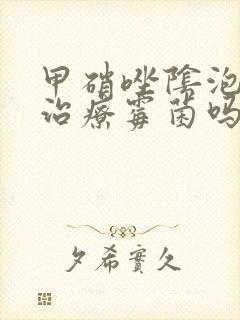 甲硝唑陰泡
治療霉菌吗
夕希實久